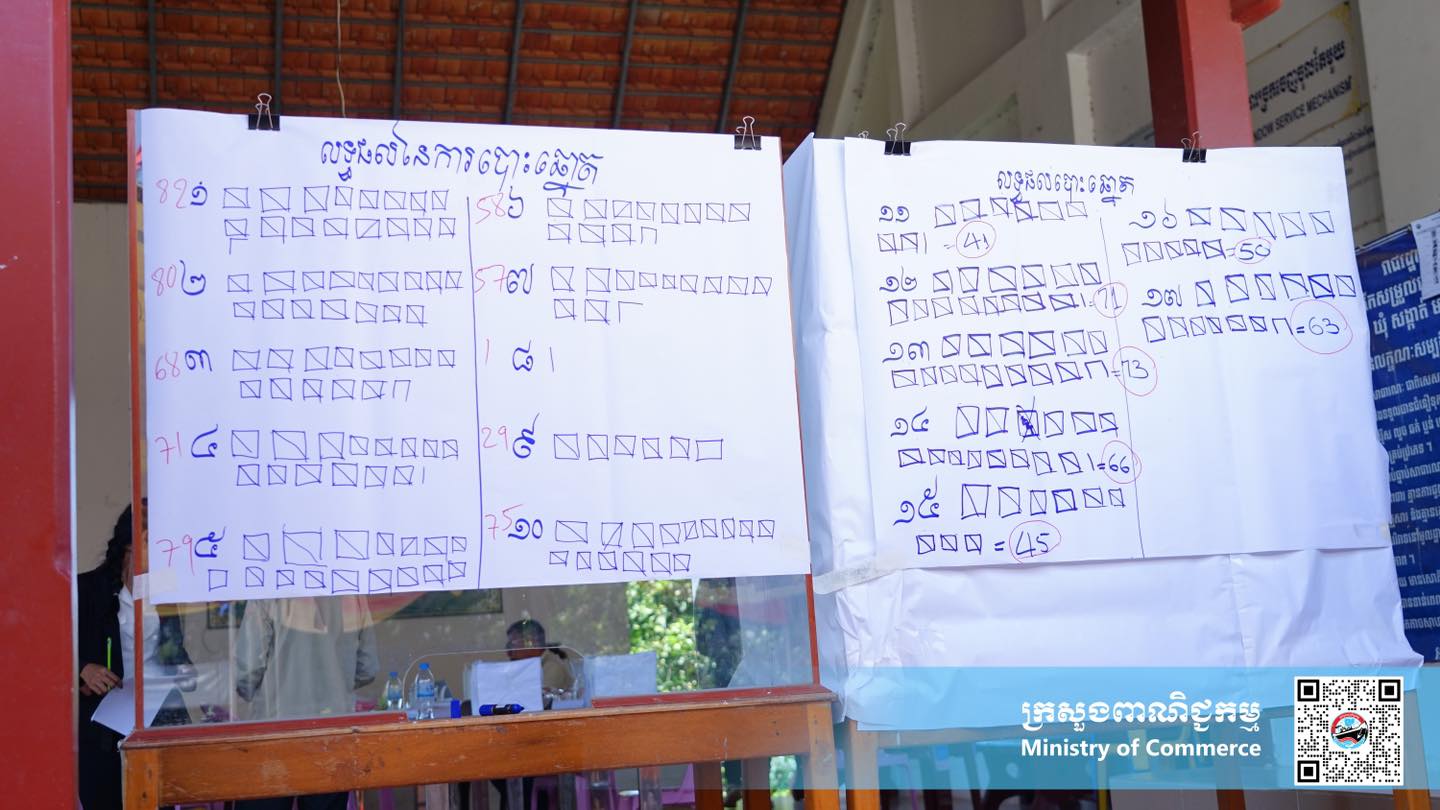 លទ្ធផលនៃការបោះឆ្នោត
82 ១
80 ២
68 ៣
71 ៤
79 ៥
58 ៦
57 ៧
1 ៨
29 ៩
75 ១០
លទ្ធផលបោះឆ្នោត
១១
= 41
១២
= 71
១៣
= 73
១៤
= 66
១៥
= 45
១៦
= 50
១៧
= 63
SERVICE MECHANISM
ឃុំ សង្កាត់
ក្រសួងពាណិជ្ជកម្ម
Ministry of Commerce